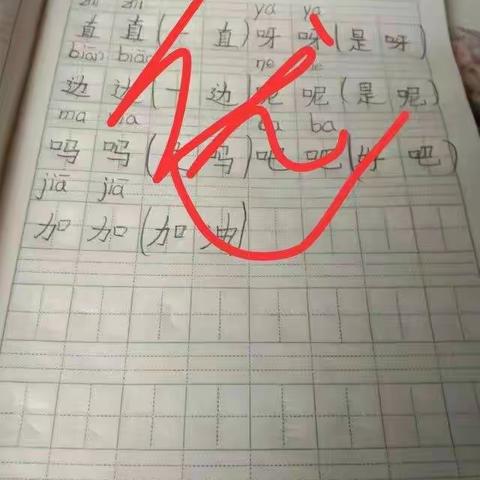 yā ya
直 直 (一 直) 呀 呀 (是 呀)
biān biān
边 边 (一 边) 呢 呢 (是 呢)
ma ba
吗 吗 ( 吗) 吧 吧 (好 吧)
jiā jiā
加 加 (加 油)
优